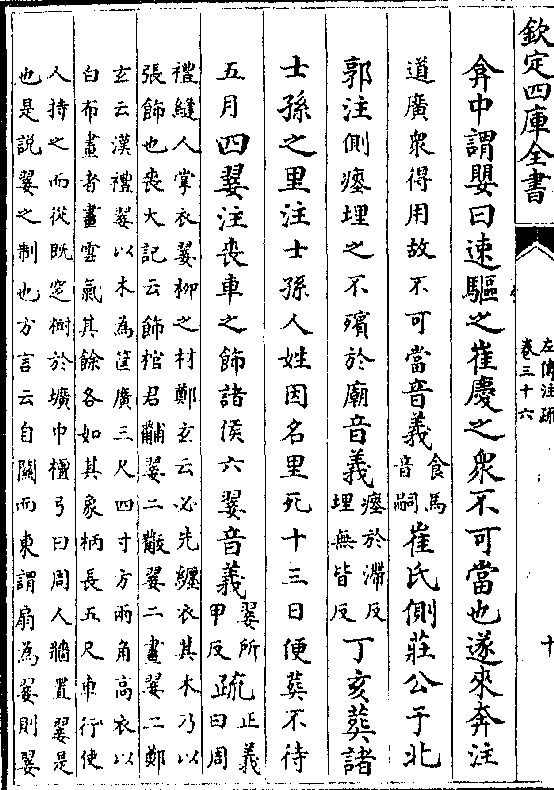 欽定四庫全書
左傳注疏
卷三十六
十
弇中謂嬰曰速驅之崔慶之衆不可當也遂來奔注
道廣衆得用故不可當音義食馬音嗣崔氏側莊公于北
郭注側瘞埋之不殯於廟音義瘞於滯反埋無皆反丁亥葬諸
士孫之里注士孫人姓因名里死十三日便葬不待
五月四翣注喪車之飾諸侯六翣音義翣所甲反疏正義曰周
禮縫人掌衣翣柳之材鄭玄云必先纏衣其木乃以
張飾也喪大記云飾棺君黼翣二黻翣二畫翣二鄭
玄云漢禮翣以木為筐廣三尺四寸方兩角高衣以
白布畫者畫雲氣其餘各如其象柄長五尺車行使
人持之而從既窆樹於壙中檀弓曰周人牆置翣是
也是説翣之制也方言云自關而東謂扇為翣則翣